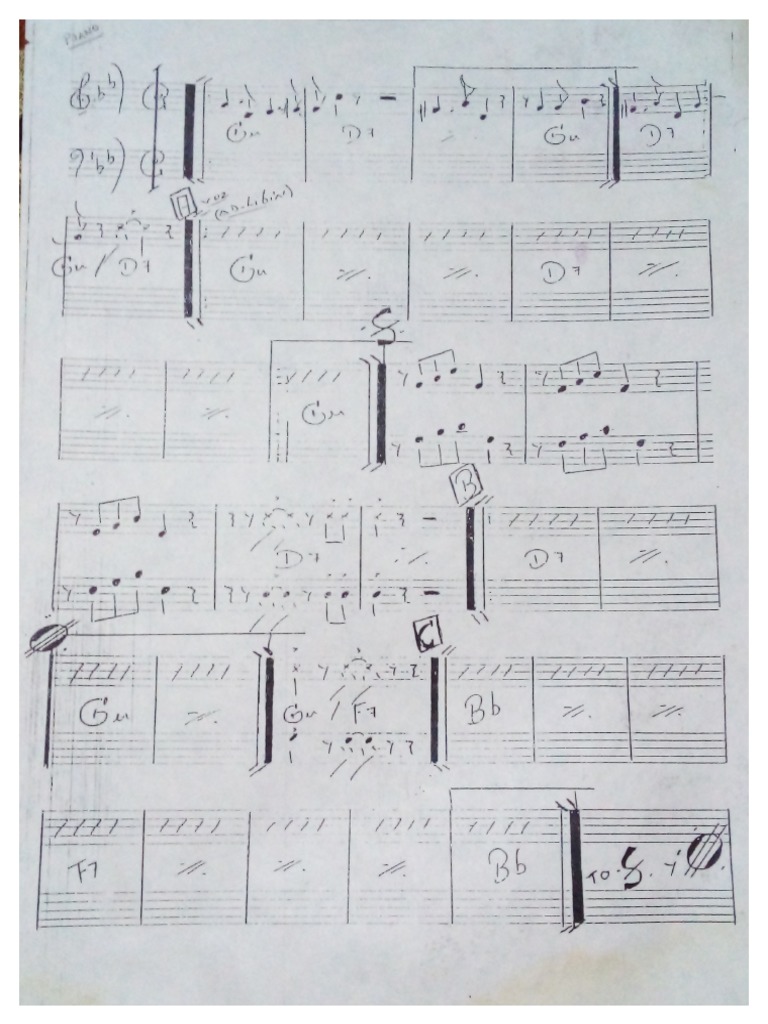 PIANO
Gm D7 Gm D7
A voz
Gm D7 Gm D7
Gm
B
D7 D7
C
Gm Gm / F7 Bb
F7 Bb TO Y